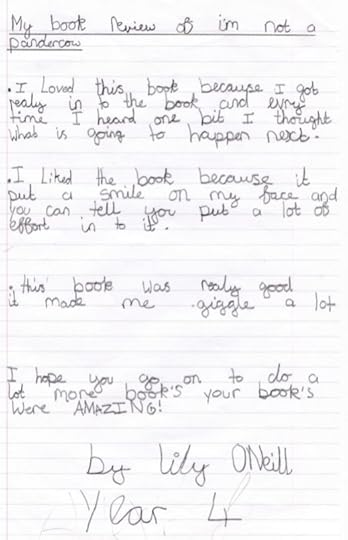 My book review of i'm not a
pandercow
• I Loved this book because I got
realy in to the book and evry
time I heard one bit I thought
what is going to happen next.
• I Liked the book because it
put a smile on my face and
you can tell you put a lot of
effort in to it.
• this book was realy good
it made me giggle a lot
I hope you go on to do a
lot more book's your book's
Were AMAZING!
by lily ONeill
Year 4